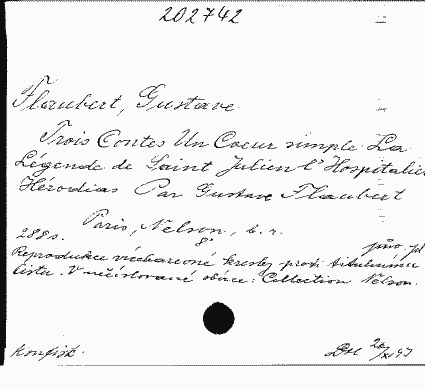 202742
Flaubert, Gustave
Trois Contes Un Coeur simple La
Légende de Saint Julien l'Hospitalier
Hérodias Par Gustave Flaubert
Paris, Nelson, b. r.
288s. 8° pův. pl
Reprodukce vícebarevné kresby proti titulnímu
listu. V nečíslované obálce: Collection Nelson.
Konfisk.